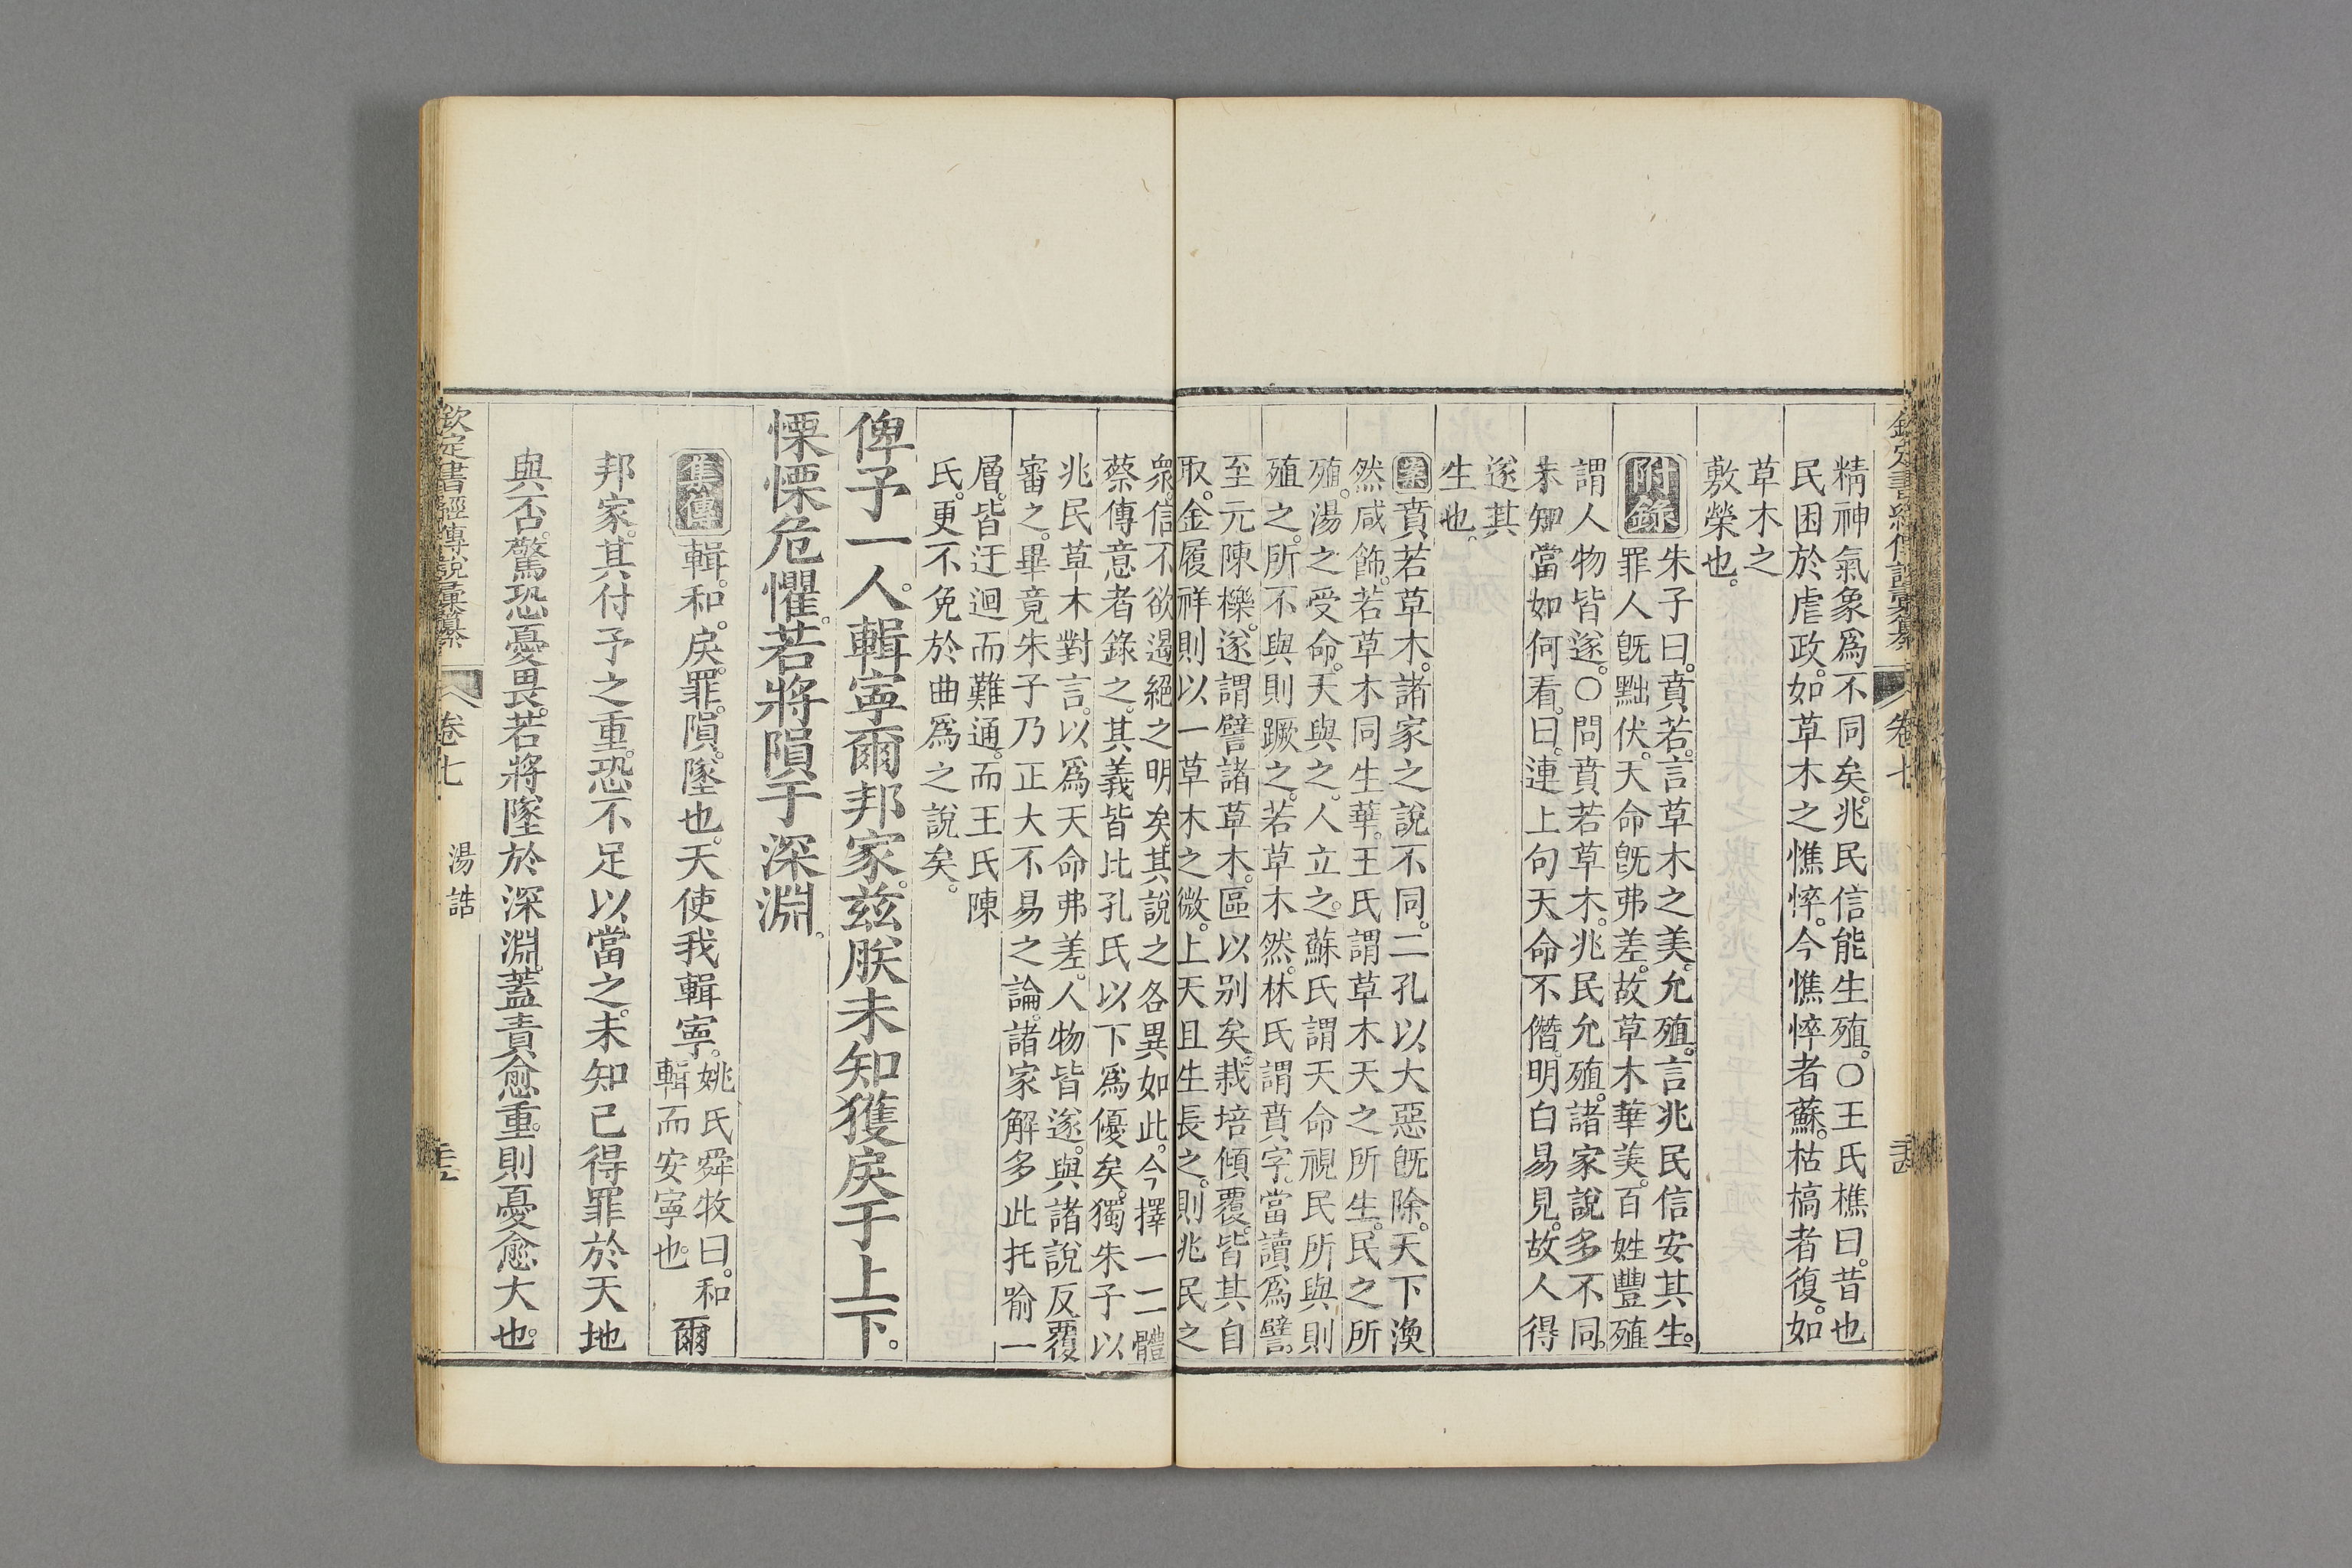 欽定書經傳說彙纂 卷七
精神氣象爲不同矣。兆民信能生殖。○王氏樵曰。昔也
民困於虐政。如草木之憔悴。今憔悴者蘇。枯槁者復。如
草木之
敷榮也。
附錄 朱子曰。賁若。言草木之美。允殖。言兆民信安其生。
罪人旣黜伏。天命旣弗差。故草木華美。百姓豐殖
謂人物皆遂。○問賁若草木。兆民允殖。諸家說多不同。
未知當如何看。曰。連上句天命不僭。明白易見。故人得
遂其
生也。
案 賁若草木。諸家之說不同。二孔以大惡旣除。天下渙
然咸飾。若草木同生華。王氏謂草木天之所生。民之所
殖。湯之受命。天與之。人立之。蘇氏謂天命視民所與則
殖之。所不與則蹶之。若草木然。林氏謂賁字。當讀爲譬。
至元陳櫟。遂謂譬諸草木。區以別矣。栽培傾覆。皆其自
取。金履祥則以一草木之微。上天且生長之。則兆民之
衆。信不欲遏絕之明矣。其說之各異如此。今擇一二體
蔡傳意者錄之。其義皆比孔氏以下爲優矣。獨朱子以
兆民草木對言。以爲天命弗差。人物皆遂。與諸說反覆
審之。畢竟朱子乃正大不易之論。諸家解多此托喻一
層。皆迂迴而難通。而王氏陳
氏。更不免於曲爲之說矣。
俾予一人。輯寧爾邦家。茲朕未知獲戾于上下。
慄慄危懼。若將隕于深淵。
集傳 輯。和。戾。罪。隕。墜也。天使我輯寧。姚氏舜牧曰。和
輯而安寧也。爾
邦家。其付予之重。恐不足以當之。未知己得罪於天地
與否。驚恐憂畏。若將墜於深淵。蓋責愈重。則憂愈大也。
欽定書經傳說彙纂 卷七 湯誥